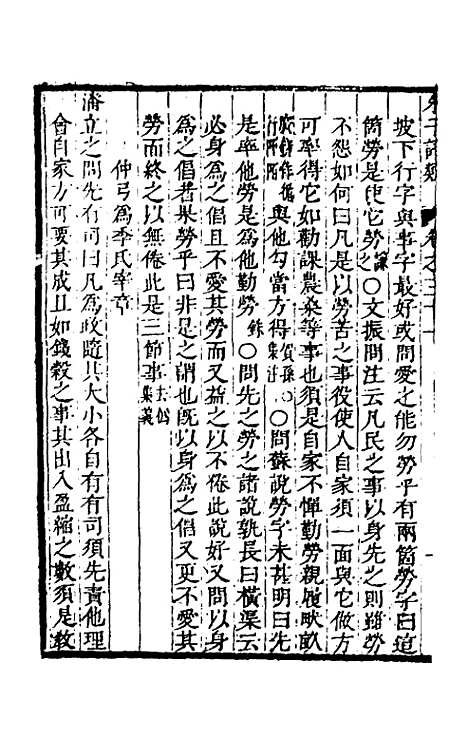 朱子語類 卷之三十一
坡下行字與事字最好或問愛之能勿勞乎有兩箇勞字曰這
箇勞是使它勞 謙 ○文振問注云凡民之事以身先之則雖勞
不怨如何曰凡是以勞苦之事役使人自家須一面與它做方
可率得它如勸課農桑等事也須是自家不憚勤勞親履畎畝
與他勾當方得 賀孫 集注 ○問蘇說勞字未甚明曰先
是率他勞是為他勤勞 銖 ○問先之勞之諸說孰長曰橫渠云
必身為之倡且不愛其勞而又益之以不倦此說好又問以身
為之倡者果勞乎曰非是之謂也既以身為之倡又更不愛其
勞而終之以無倦此是三節事 去偽 集義
仲弓為季氏宰章
潘立之問先有司曰凡為政隨其大小各自有有司須先責他理
會自家方可要其成且如錢穀之事其出入盈縮之數須是教